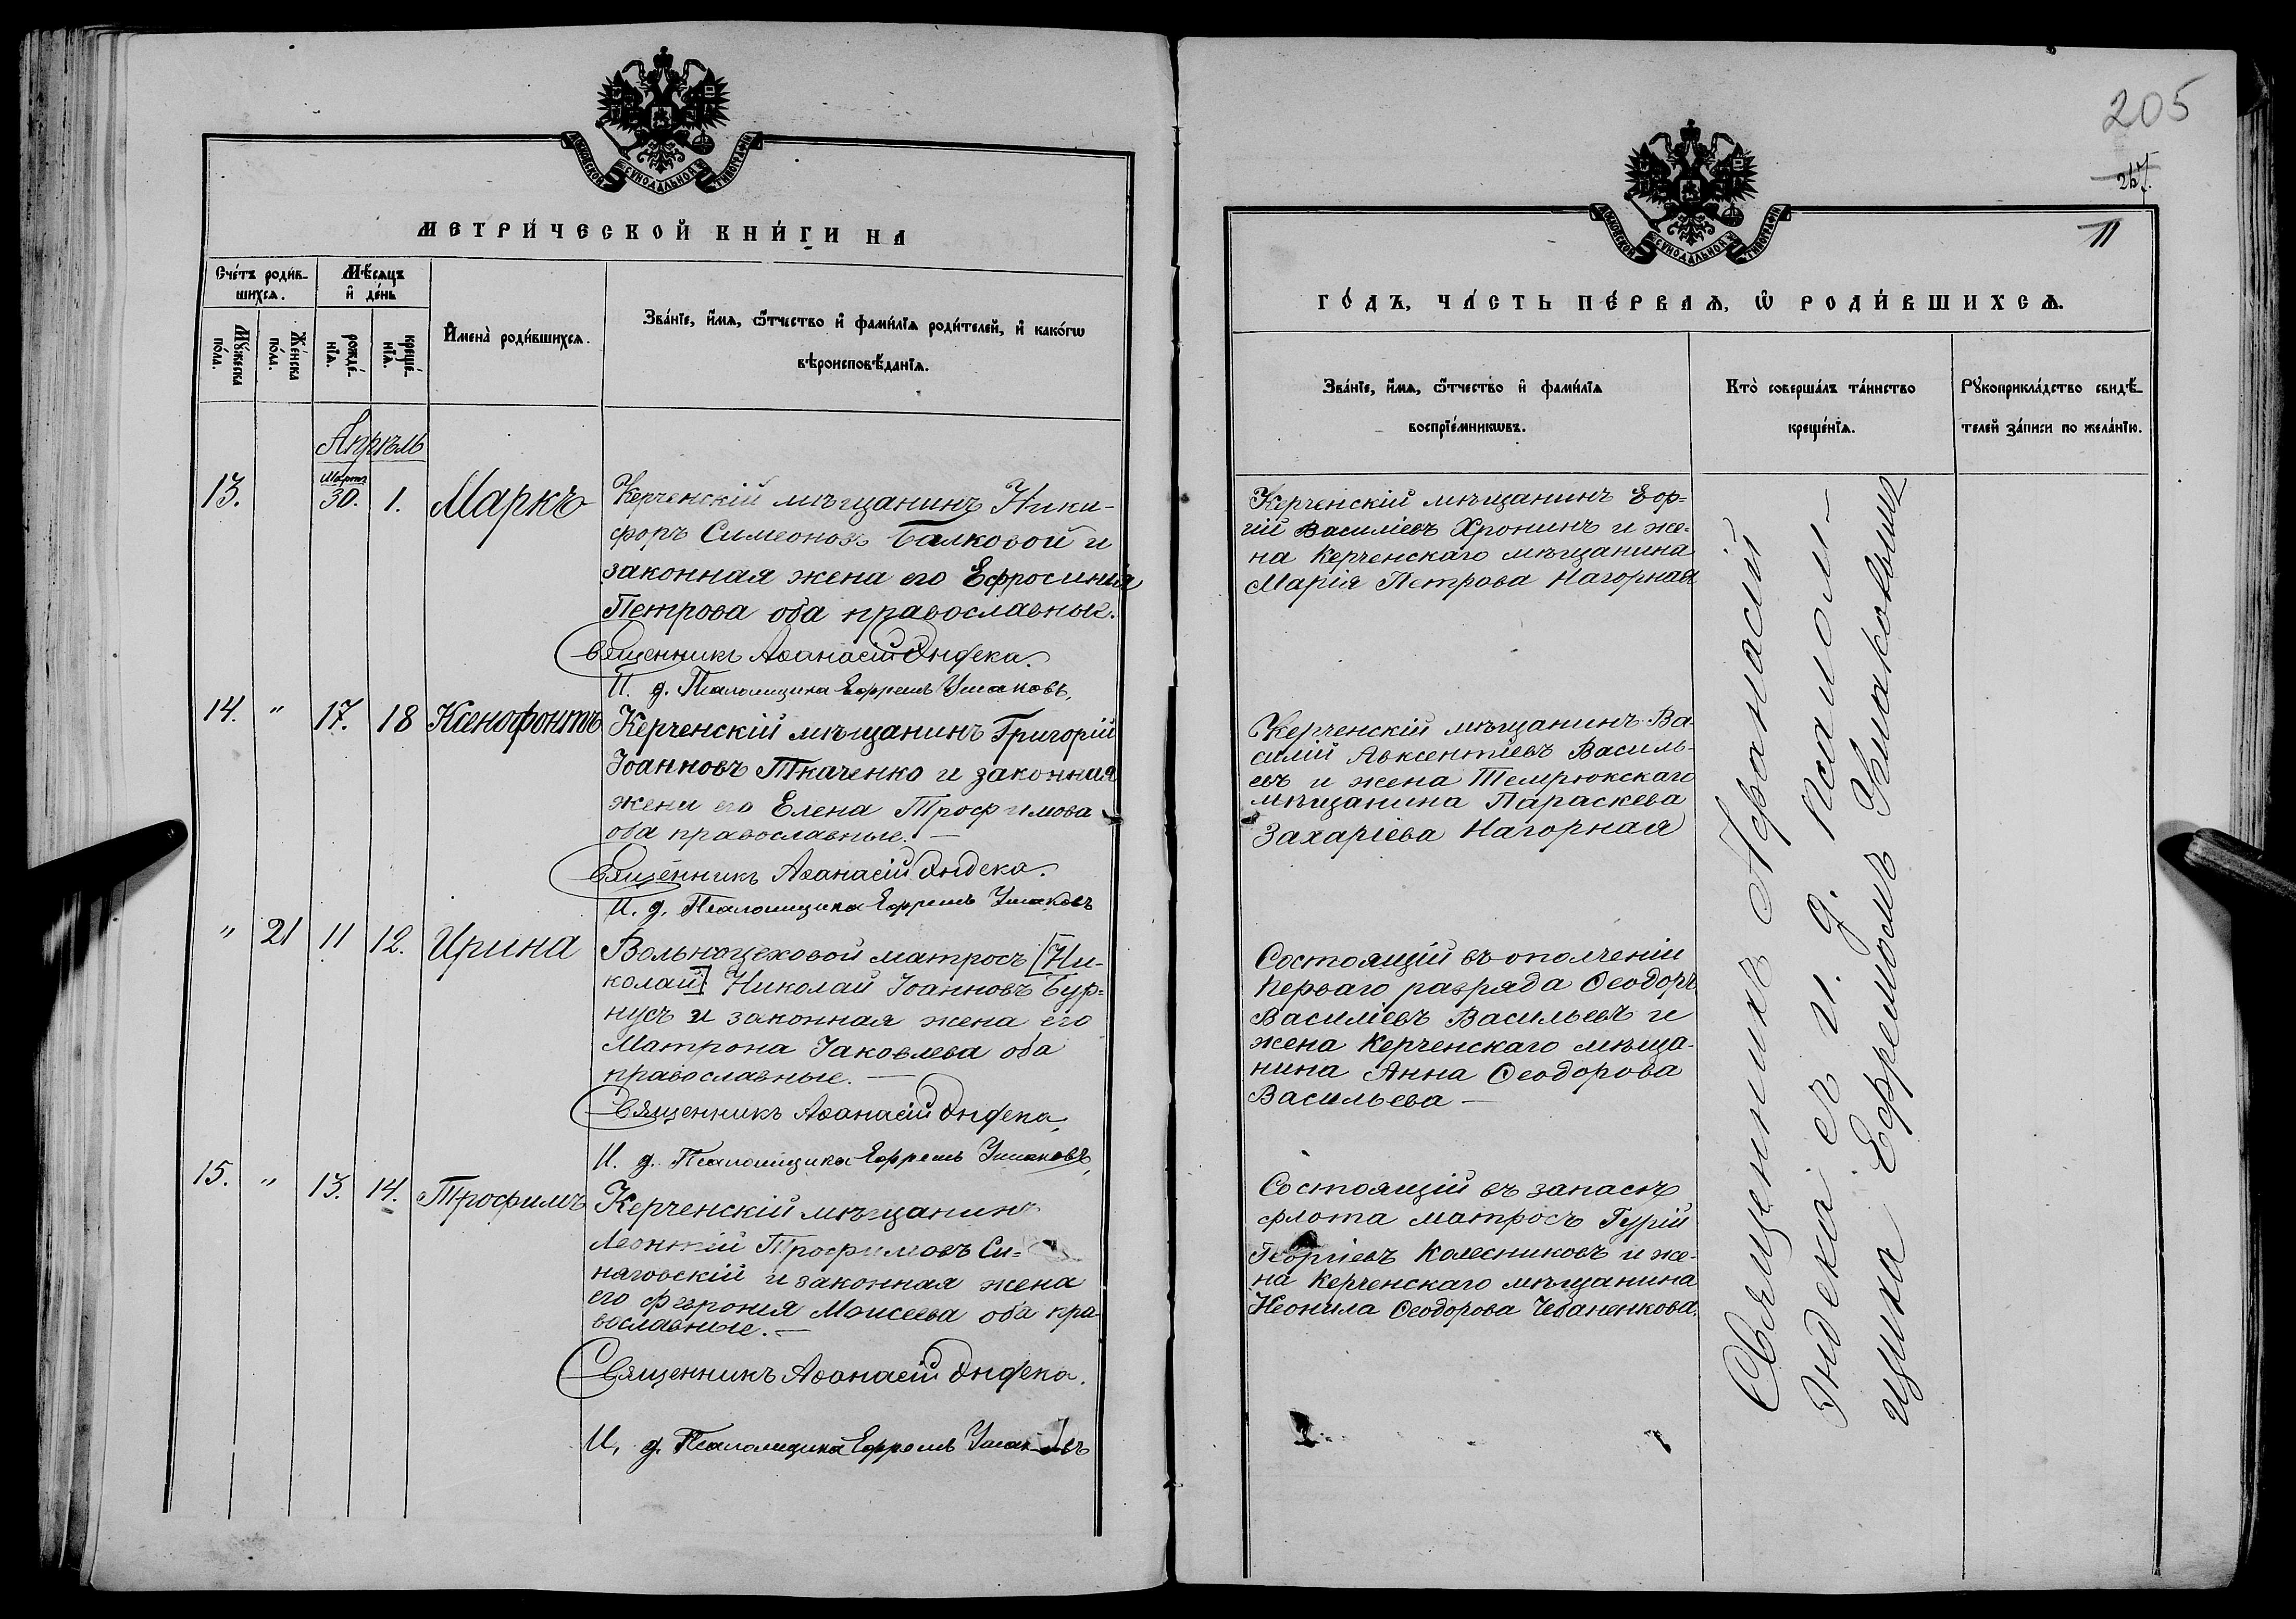 МОСКОВСКОЙ СѴНОДАЛЬНОЙ ТИПОГРАФІИ
МЕТРИ́ЧЕСКОЙ КНИ́ГИ НА
Сче́тъ роди́в-
шихсѧ.
Мѣ́сѧцъ
и҆ де́нь
И҆мена̀ роди́вшихсѧ.
Зва́нїе, и҆́мѧ, ѻ҆́тчество и҆ фами́лїѧ роди́телей, и҆ како́гѡ
вѣроисповѣ́данїѧ.
Мꙋ́жеска
по́ла.
Же́нска
по́ла.
рожде́-
нїѧ.
креще́-
нїѧ.
Апрѣль
13.
Мартъ
30.
1.
Маркъ
Керченскій мѣщанинъ Ники-
форъ Симеоновъ Балковой и
законная жена его Ефросинія
Петрова оба православные.
Священникъ Аѳанасій Яндека.
И. д. Псаломщика Ефремъ Ушаковъ.
14.
"
17.
18
Ксенофонтъ
Керченскій мѣщанинъ Григорій
Іоанновъ Ткаченко и законная
жена его Елена Трофимова
оба православные. —
Священникъ Аѳанасій Яндека.
И. д. Псаломщика Ефремъ Ушаковъ
"
21
11
12.
Ирина
Вольноцеховой матросъ [Ни-
колай] Николай Іоанновъ Бур-
нусъ и законная жена его
Матрона Іаковлева оба
православные. —
Священникъ Аѳанасій Яндека.
И. д. Псаломщика Ефремъ Ушаковъ.
15.
"
13.
14.
Трофимъ
Керченскій мѣщанинъ
Леонтій Трофимовъ Си-
няговскій и законная жена
его Феврония Моисеева оба пра-
вославные. —
Священникъ Аѳанасій Яндека.
И. д. Псаломщика Ефремъ Ушаковъ
205
267.
11
МОСКОВСКОЙ СѴНОДАЛЬНОЙ ТИПОГРАФІИ
ГО́ДЪ, ЧА́СТЬ ПЕ́РВАѦ, Ѡ҆ РОДИ́ВШИХСѦ.
Зва́нїе, и҆́мѧ, ѻ҆́тчество и҆ фами́лїѧ
воспрїе́мникѡвъ.
Кто̀ соверша́лъ та́инство
креще́нїѧ.
Рꙋкоприкла́дство свидѣ́-
телей за́писи по жела́нїю.
Керченскій мѣщанинъ Еор-
гій Василіевъ Хронинъ и же-
на Керченскаго мѣщанина
Марія Петрова Нагорная
Керченскій мѣщанинъ Ва-
силій Авксентіевъ Василь-
евъ и жена Темрюкскаго
мѣщанина Параскева
Захаріева Нагорная
Состоящій въ ополченіи
перваго разряда Ѳеодоръ
Василіевъ Васильевъ и
жена Керченскаго мѣща-
нина Анна Ѳеодорова
Васильева —
Состоящій въ запасѣ
флота матросъ Гурій
Георгіевъ Колесниковъ и же-
на Керченскаго мѣщанина
Неонила Ѳеодорова Чебаненкова.
Священникъ Афанасій
Яндека съ и. д. псалом-
щика Ефремомъ Ушаковымъ